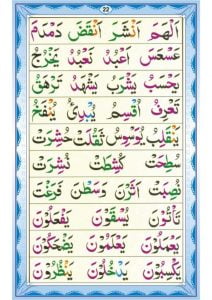 22
اَلْهَمَ اَنْشَرَ اَنْقَضَ دَمْدَمَ
عَسْعَسَ اَعْبُدُ نَعْبُدُ يَخْرُجُ
يَحْسَبُ يَشْرَبُ يَشْهَدُ تَرْهَقُ
تَعْرِفُ اُقْسِمُ يُبْدِئُ يَنْفَخُ
يَنْقَلِبُ يُوَسْوِسُ ثَقُلَتْ حُشِرَتْ
سُطِحَتْ كُشِطَتْ نُشِرَتْ
نُصِبَتْ اَثَرْنَ وَسَطْنَ فَرَغْتَ
تَأْتُوْنَ يُسْقَوْنَ يَفْعَلُوْنَ
يَعْمَلُوْنَ يَعْلَمُوْنَ يَضْحَكُوْنَ
يَكْسِبُوْنَ يَدْخُلُوْنَ يَنْظُرُوْنَ